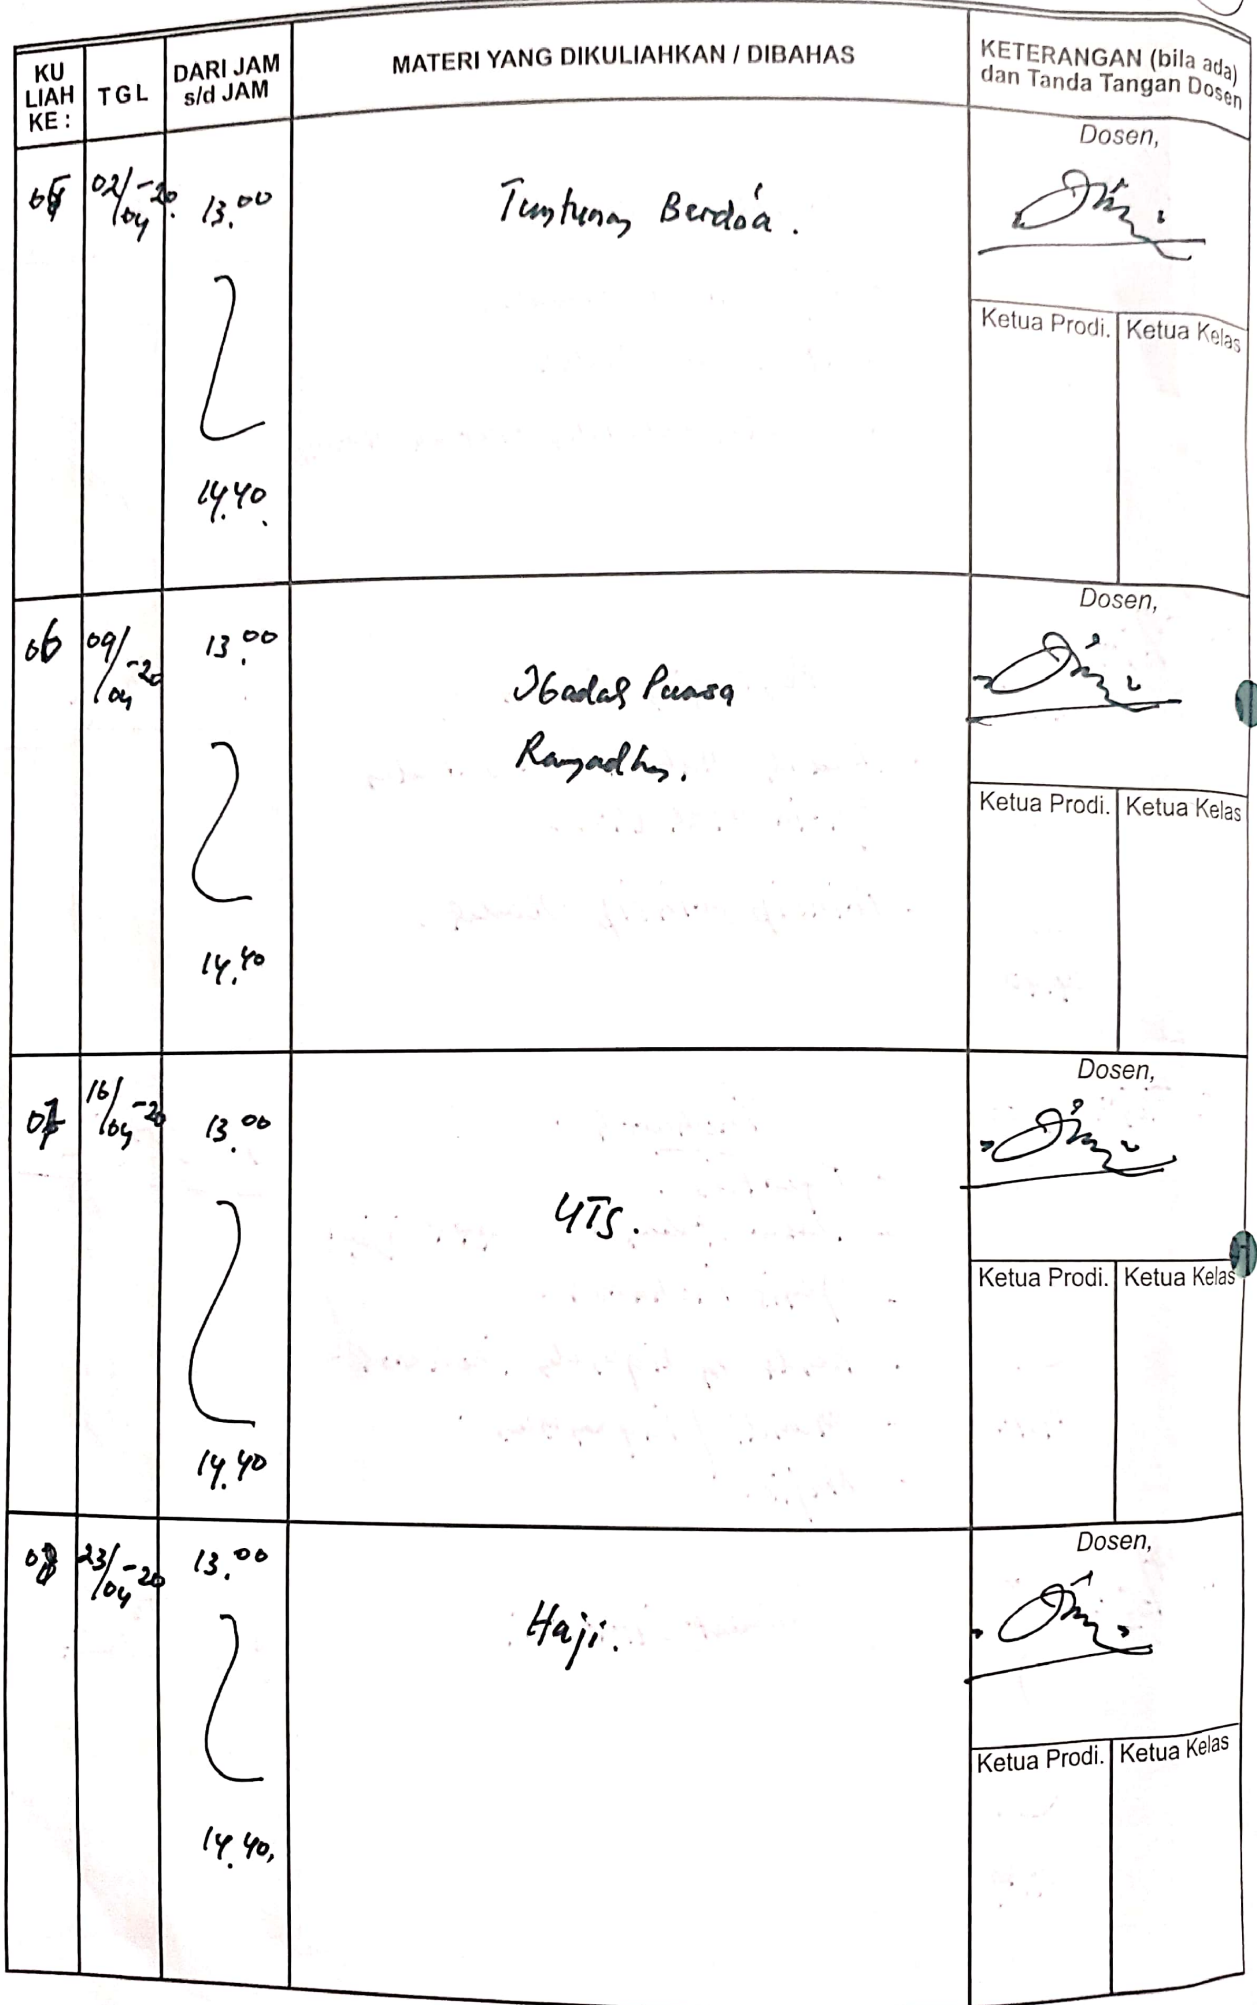 KU
LIAH
KE :
TGL
DARI JAM
s/d JAM
MATERI YANG DIKULIAHKAN / DIBAHAS
KETERANGAN (bila ada)
dan Tanda Tangan Dosen
05
02/04-20.
13.00
14.40.
Tuntunan Berdo'a.
Dosen,
Ketua Prodi. Ketua Kelas
06
09/04-20
13.00
14.40
Ibadah Puasa
Ramadhan.
Dosen,
Ketua Prodi. Ketua Kelas
07
16/04-20
13.00
14.40
UTS.
Dosen,
Ketua Prodi. Ketua Kelas
08
23/04-20
13.00
14.40,
Haji.
Dosen,
Ketua Prodi. Ketua Kelas